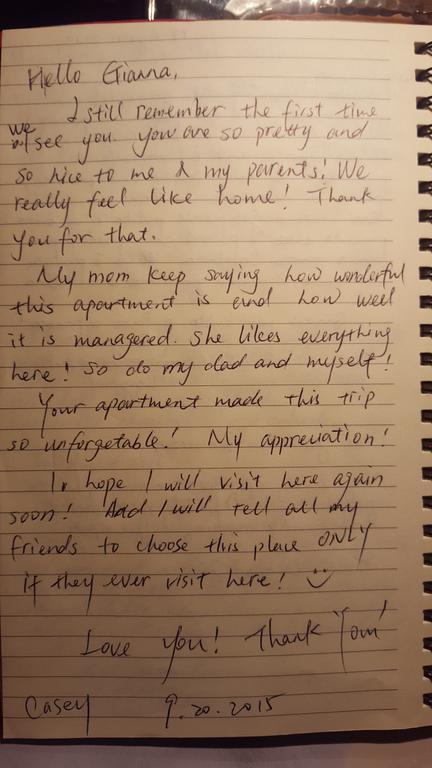 Hello Gianna,
I still remember the first time
we see you. you are so pretty and
so nice to me & my parents! We
really feel like home! Thank
you for that.
My mom keep saying how wonderful
this apartment is and how well
it is managered. she likes everything
here! so do my dad and myself!
Your apartment made this trip
so unforgetable! My appreciation!
I hope I will visit here again
soon! And I will tell all my
friends to choose this place ONLY
if they ever visit here!
Love you! Thank You!
Casey 9.20.2015